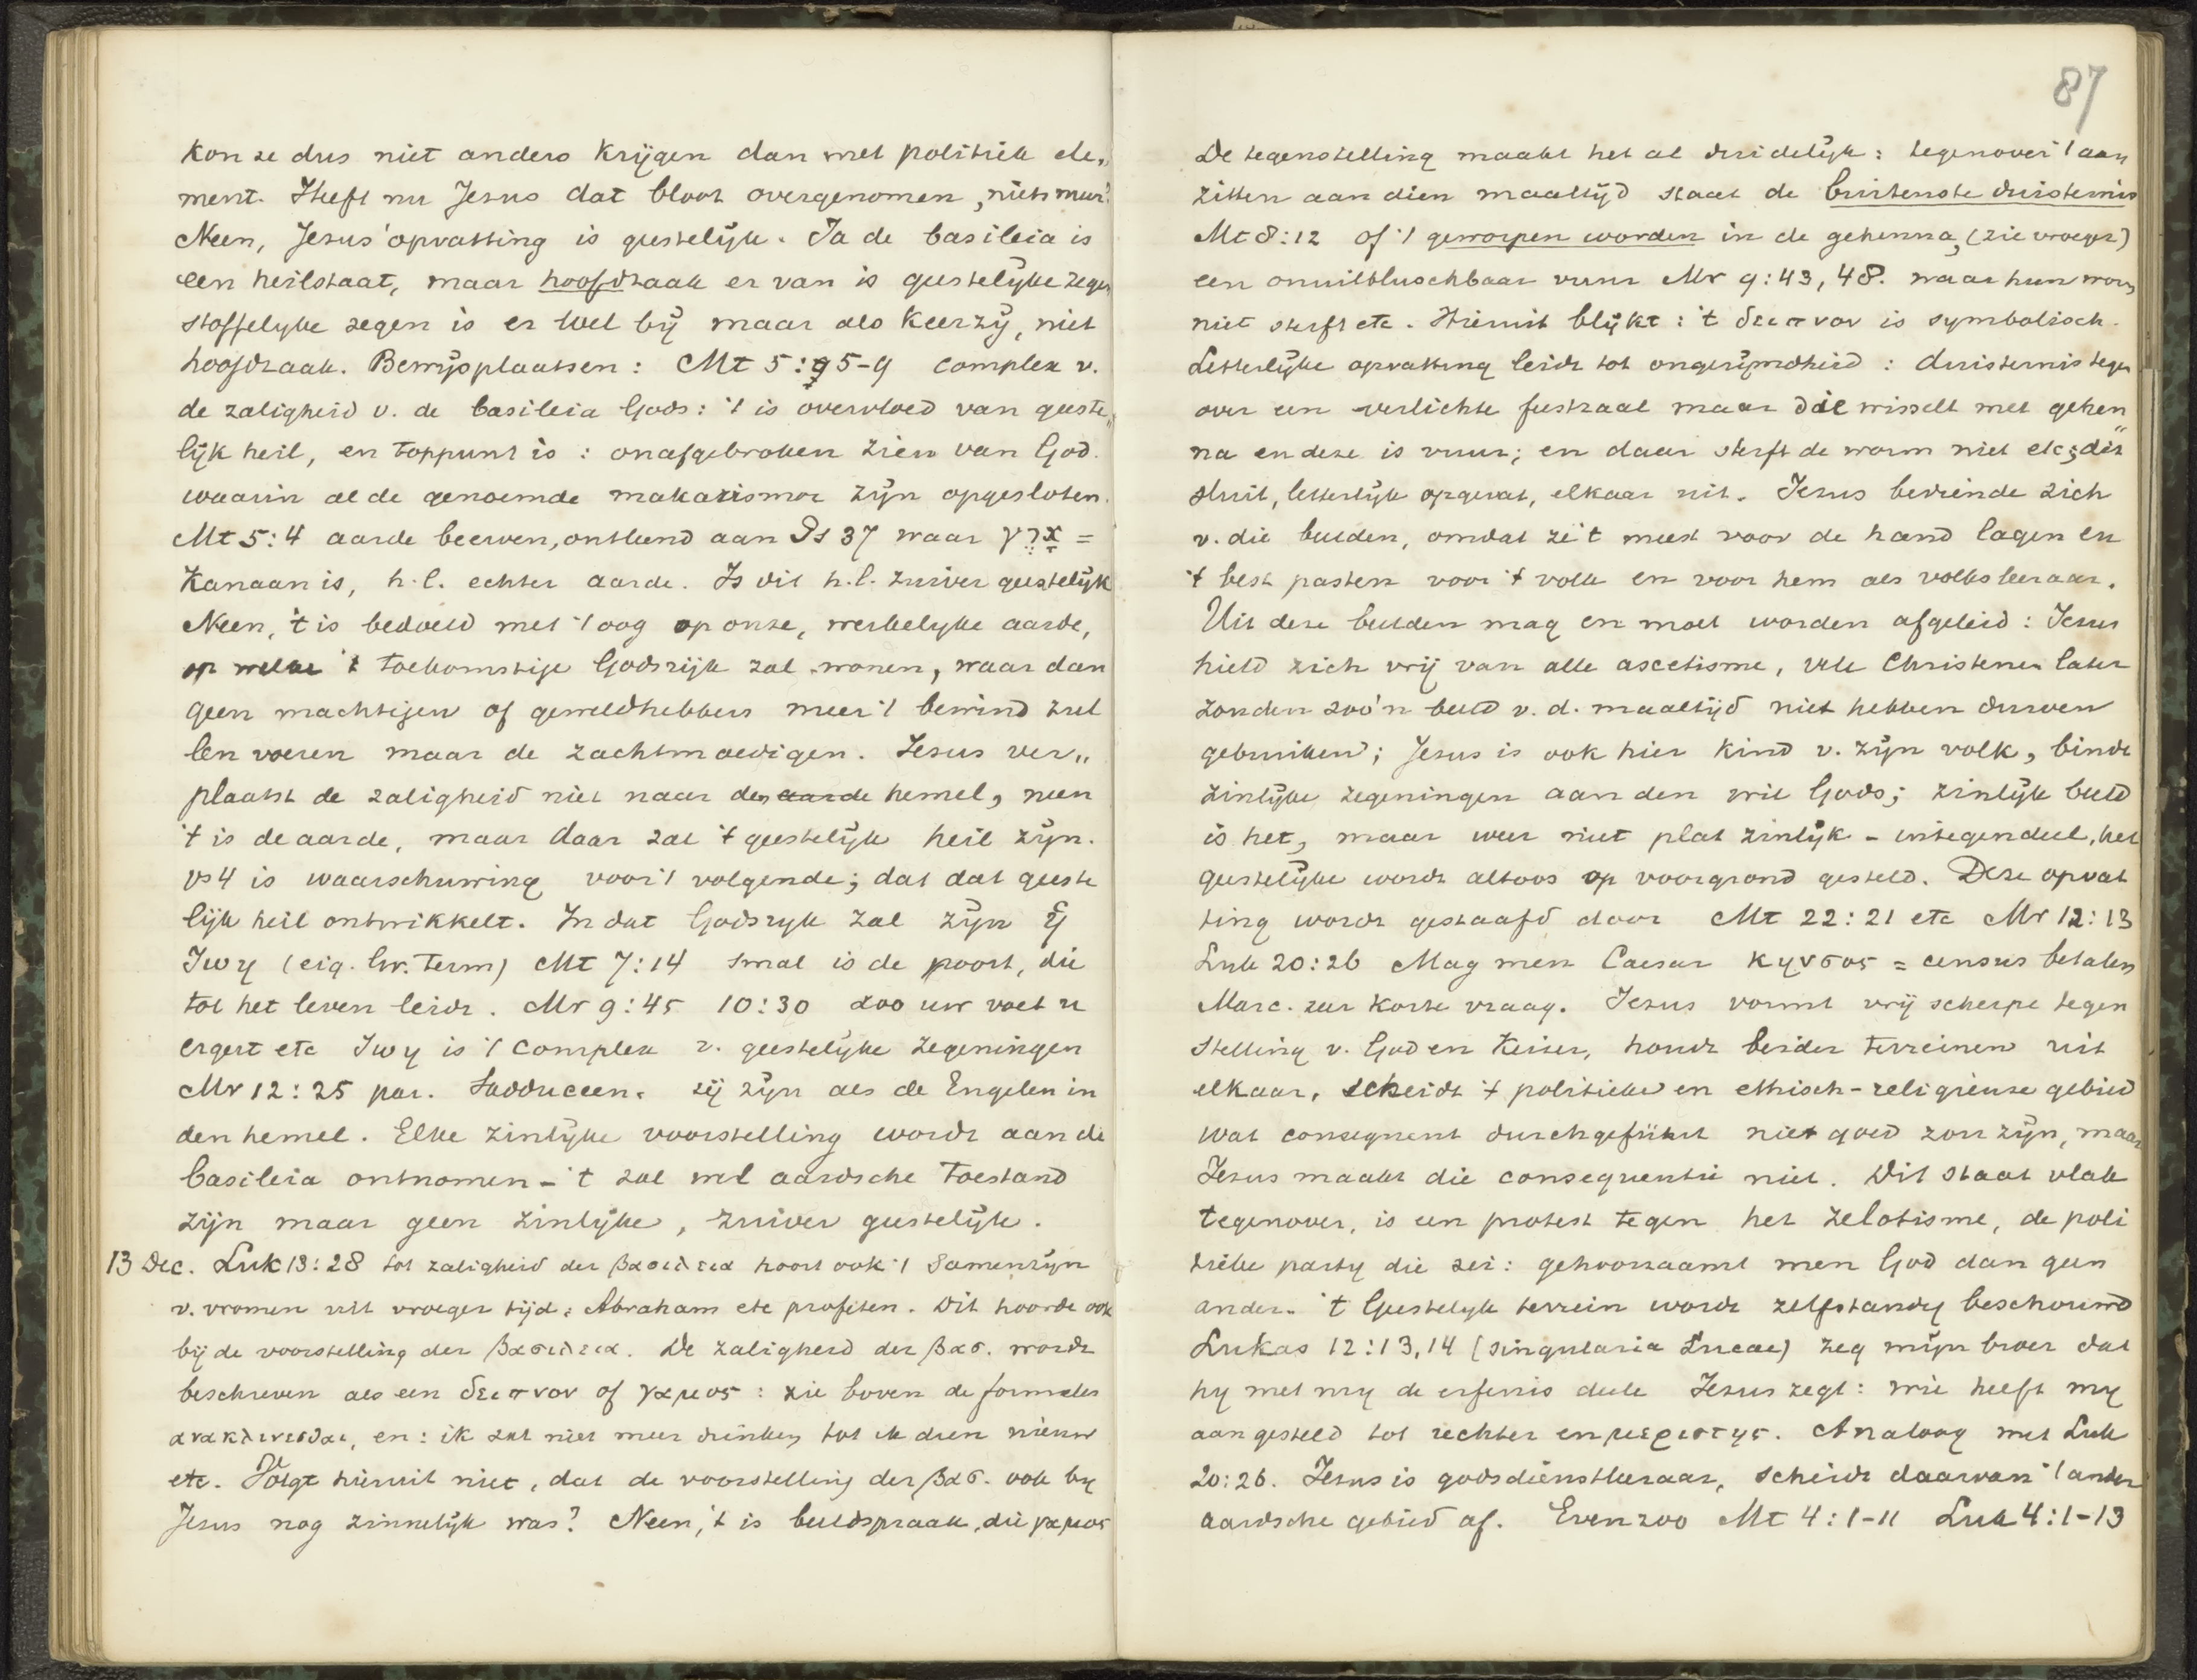 kon ze dus niet anders krijgen dan met politiek ele„
ment. Heeft nu Jesus dat bloot overgenomen, niets meer?
Neen, Jesus' opvatting is geestelijk. Ja de basileia is
een heilstaat, maar hoofdzaak er van is geestelijke zegen
stoffelyke zegen is er wel bij maar als keerzij, niet
hoofdzaak. Bewijsplaatsen: Mt 5:5-9 complex v.
de zaligheid v. de basileia Gods: 't is overvloed van geeste„
lijk heil, en toppunt is: onafgebroken zien van God.
waarin al de genoemde makarismoe zijn opgesloten.
Mt 5:4 aarde beerven, ontleend aan Ps 37 waar ארץ =
Kanaan is, h.l. echter aarde. Is dit h.l. zuiver geestelijk
Neen, 't is bedoeld met 't oog op onze, werkelyke aarde,
op welke 't toekomstige Godsrijk zal wonen, waar dan
geen machtigen of geweldhebbers meer 't bewind zul
len voeren maar de zachtmoedigen. Jesus ver„
plaatst de zaligheid niet naar den aarde hemel, neen
't is de aarde, maar daar zal 't geestelijk heil zijn.
vs 4 is waarschuwing voor 't volgende; dat dat geeste
lijk heil ontwikkelt. In dat Godsryk zal zijn ἡ
ζωη (eig. Gr. term) Mt 7:14 smal is de poort, die
tot het leven leidt. Mr 9:45 10:30 zoo uw voet u
ergert etc ζωη is 't complex v. geestelijke zegeningen
Mr 12:25 par. Sadduceen. zij zijn als de Engelen in
den hemel. Elke zinlijke voorstelling wordt aan de
basileia ontnomen - 't zal wel aardsche toestand
zijn maar geen zinlijke, zuiver geestelijk.
13 Dec. Luk 13:28 tot zaligheid der βασιλεια hoort ook 't samenzijn
v. vromen uit vroeger tijd: Abraham etc profeten. Dit hoorde ook
bij de voorstelling der βασιλεια. De zaligheid der βασ. wordt
beschreven als een δειπνον of γαμος: zie boven de formules
ανακλινεσθαι, en: ik zal niet meer drinken tot ik dien nieuw
etc. Volgt hieruit niet, dat de voorstelling der βασ. ook by
Jesus nog zinnelijk was? Neen, 't is beeldspraak, die γαμος
87
De tegenstelling maakt het al duidelijk: tegenover 't aan
zitten aan dien maaltijd staat de buitenste duisternis
Mt 8:12 of 't geworpen worden in de gehenna, (zie vroeger)
een onuitbluschbaar vuur Mr 9:43, 48. waar hun worm
niet sterft etc. Hieruit blijkt: 't δειπνον is symbolisch.
Letterlijke opvatting leidt tot ongerijmdheid: duisternis tegen
over een verlichte feestzaal maar die wisselt met gehen„
na en deze is vuur; en daar sterft de worm niet etc; dit
sluit, letterlijk opgevat, elkaar uit. Jesus bediende zich
v. die beelden, omdat ze 't meest voor de hand lagen en
't best pasten voor 't volk en voor hem als volksleeraar.
Uit deze beelden mag en moet worden afgeleid: Jesus
hield zich vrij van alle ascetisme, vele Christenen later
zouden zoo'n beeld v. d. maaltijd niet hebben durven
gebruiken; Jesus is ook hier kind v. zijn volk, bindt
zinlijke zegeningen aan den wil Gods; zinlijk beeld
is het, maar weer niet plat zinlijk - integendeel, het
geestelijke wordt altoos op voorgrond gesteld. Deze opvat
ting wordt gestaafd door Mt 22:21 etc Mr 12:13
Luk 20:26 Mag men Caesar κηνσος = census betalen
Marc. zeer korte vraag. Jesus vormt vrij scherpe tegen
stelling v. God en Keizer, houdt beider terreinen uit
elkaar, scheidt 't politieke en ethisch-religieuse gebied
wat consequent durchgeführt niet goed zou zijn, maar
Jesus maakt die consequentie niet. Dit staat vlak
tegenover, is een protest tegen het zelotisme, de poli
tieke party die zei: gehoorzaamt men God dan geen
ander. 't Geestelyk terrein wordt zelfstandig beschouwd
Lukas 12:13,14 (singularia Lucae) zeg mijn broer dat
hy met my de erfenis deele Jesus zegt: wie heeft my
aangesteld tot rechter en μεριστης. Analoog met Luk
20:26. Jesus is godsdienstleeraar, scheidt daarvan 't ander
aardsche gebied af. Evenzoo Mt 4:1-11 Luk 4:1-13